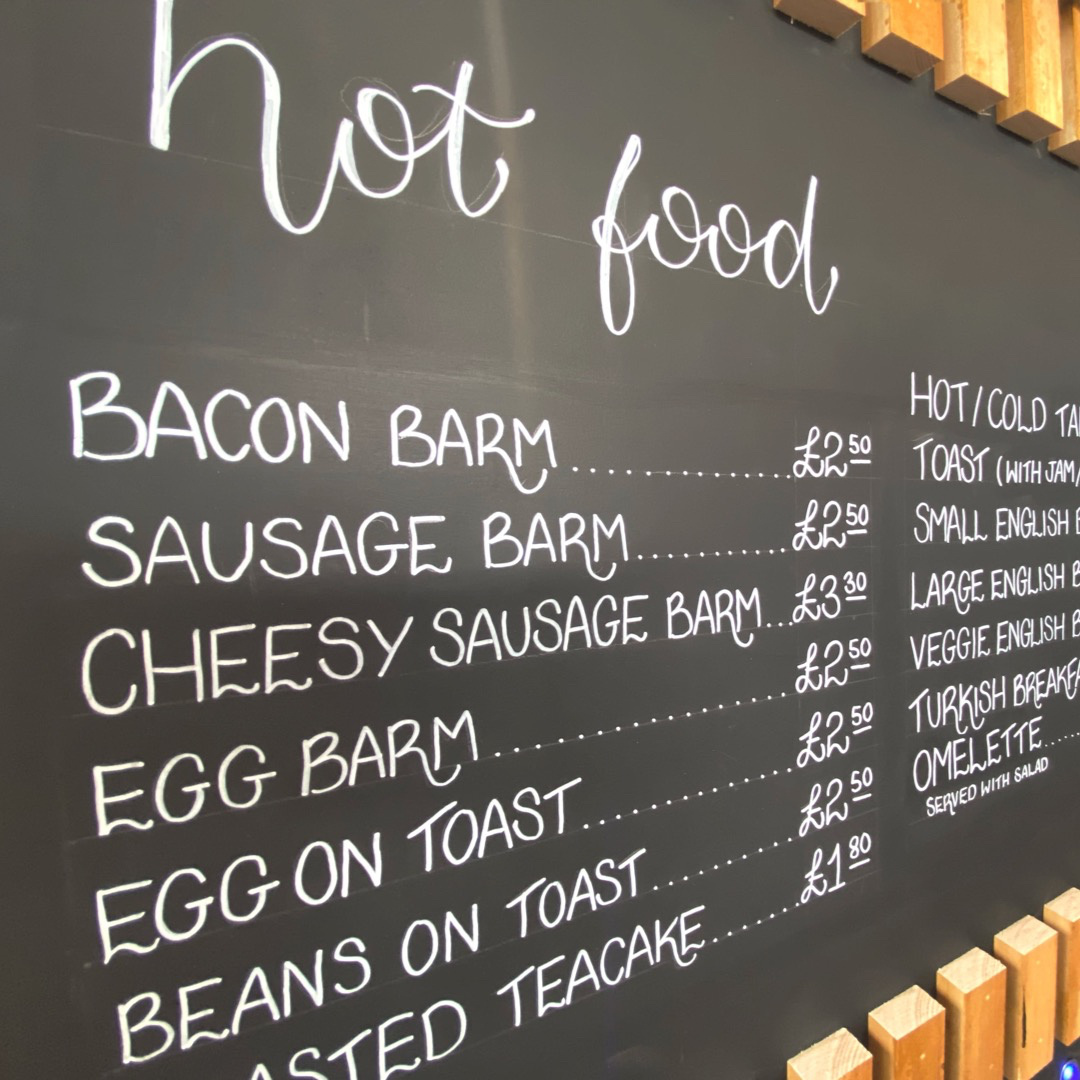 hot food
BACON BARM..................£2 50
SAUSAGE BARM............£2 50
CHEESY SAUSAGE BARM...£3 30
EGG BARM........................£2 50
EGG ON TOAST.................£2 50
BEANS ON TOAST............£2 50
TEACAKE........£1 80
HOT/COLD
TOAST (WITH JAM/
SMALL ENGLISH
LARGE ENGLISH
VEGGIE ENGLISH
TURKISH
OMELETTE.....
SERVED WITH SALAD